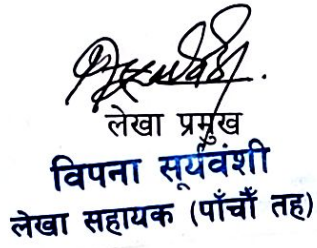 लेखा प्रमुख
विपना सूर्यवंशी
लेखा सहायक (पाँचौँ तह)